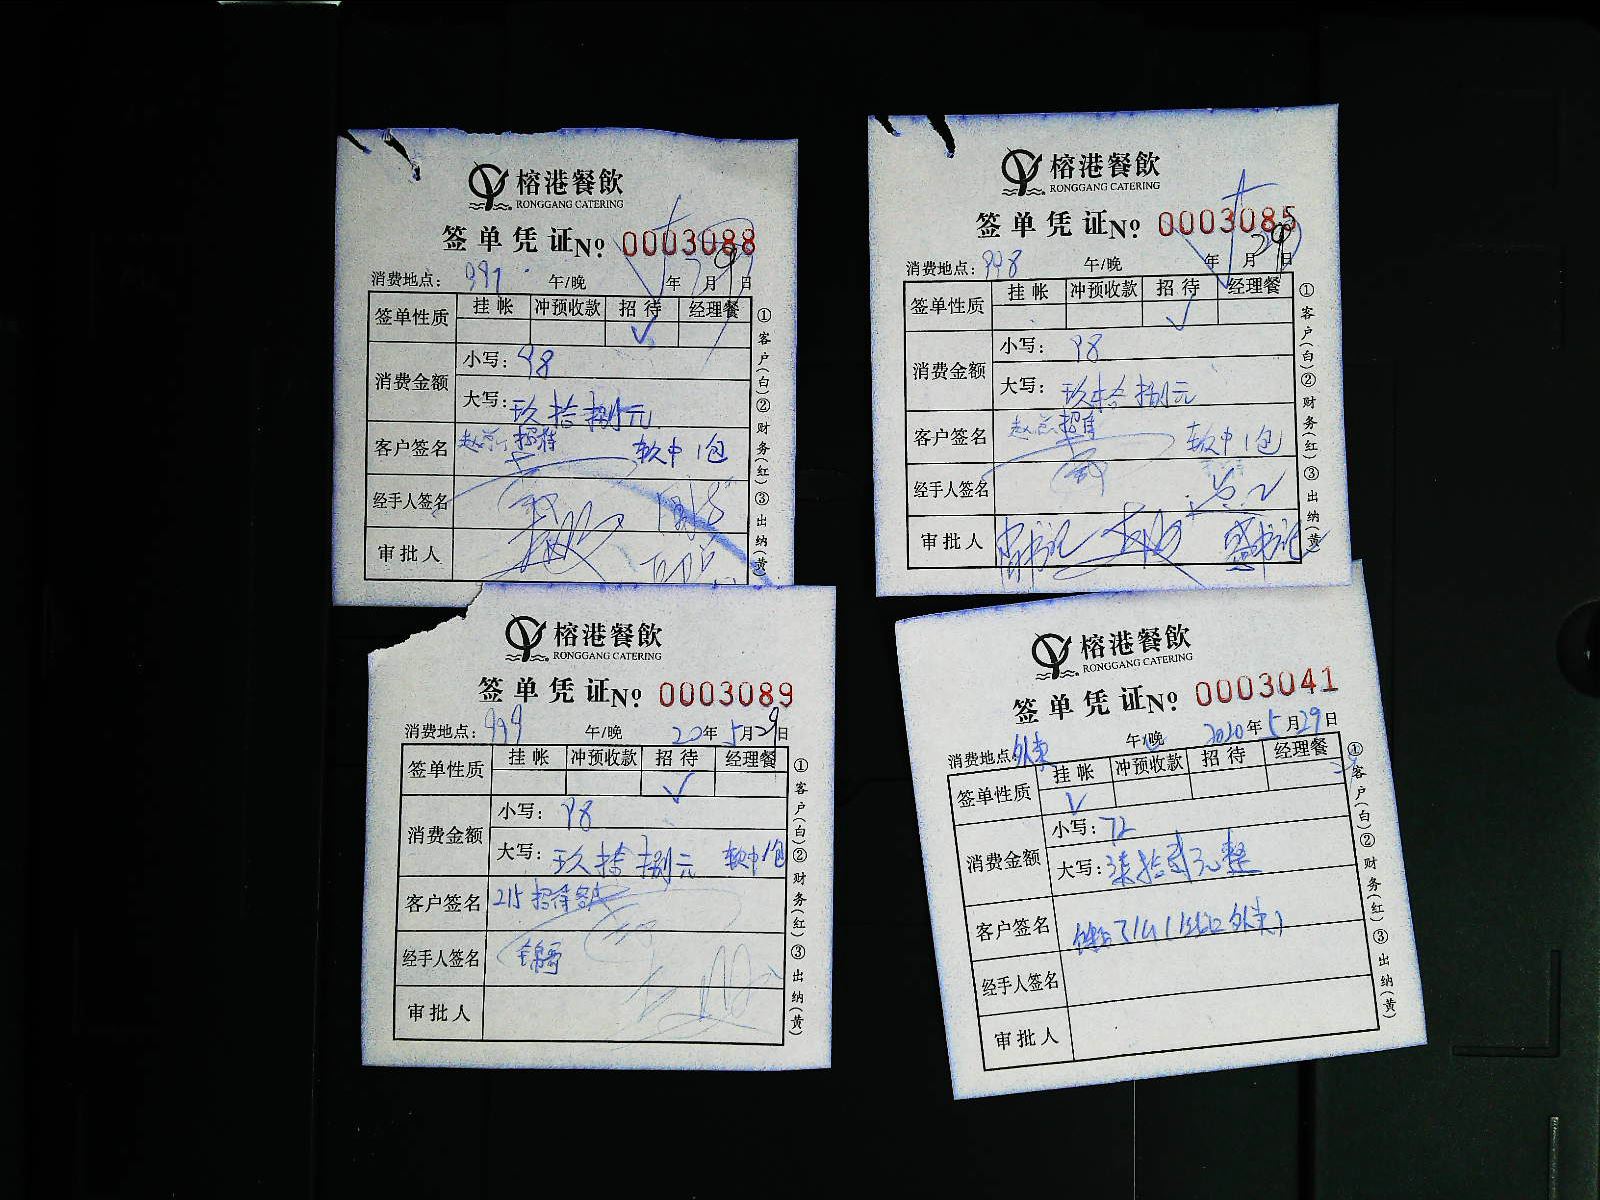 榕港餐飲
RONGGANG CATERING
签单凭证No 0003088
消费地点: 午/晚 年 月 9 日
签单性质 挂帐 冲预收款 招待 经理餐
√
消费金额 小写: 98
大写: 玖拾捌元
客户签名 招待 软中1包
经手人签名
审批人
①客户(白)②财务(红)③出纳(黄)
榕港餐飲
RONGGANG CATERING
签单凭证No 0003085
消费地点: 998 午/晚 年 月 29 日
签单性质 挂帐 冲预收款 招待 经理餐
√
消费金额 小写: 98
大写: 玖拾捌元
客户签名 招待 软中1包
经手人签名
审批人
①客户(白)②财务(红)③出纳(黄)
榕港餐飲
RONGGANG CATERING
签单凭证No 0003089
消费地点: 999 午/晚 20年5月29日
签单性质 挂帐 冲预收款 招待 经理餐
√
消费金额 小写: 98
大写: 玖拾捌元 软中1包
客户签名 215招待
经手人签名
审批人
①客户(白)②财务(红)③出纳(黄)
榕港餐飲
RONGGANG CATERING
签单凭证No 0003041
消费地点: 外卖 午/晚 2020年5月29日
签单性质 挂帐 冲预收款 招待 经理餐
√
消费金额 小写: 72
大写: 柒拾贰元整
客户签名 外卖
经手人签名
审批人
①客户(白)②财务(红)③出纳(黄)